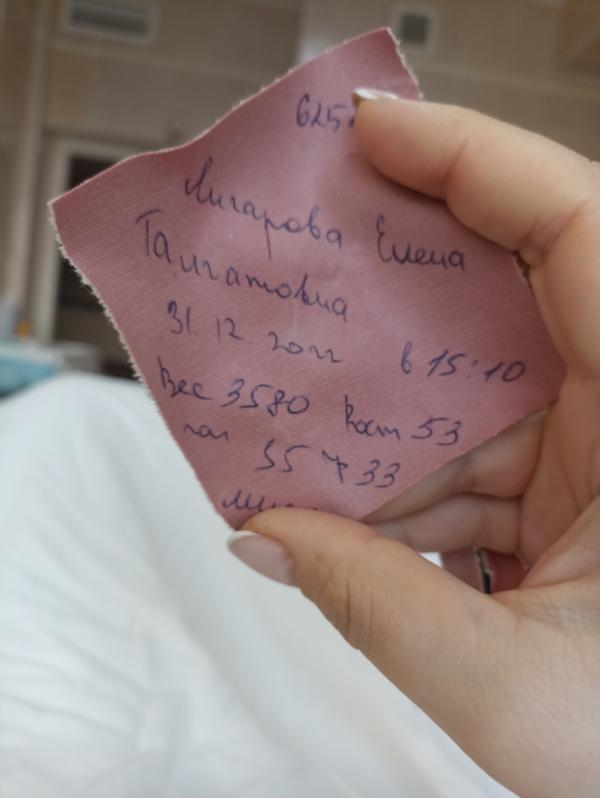 625
Лигарова Елена
Талгатовна
31.12.2022 в 15:10
Вес 3580 Рост 53
35 33